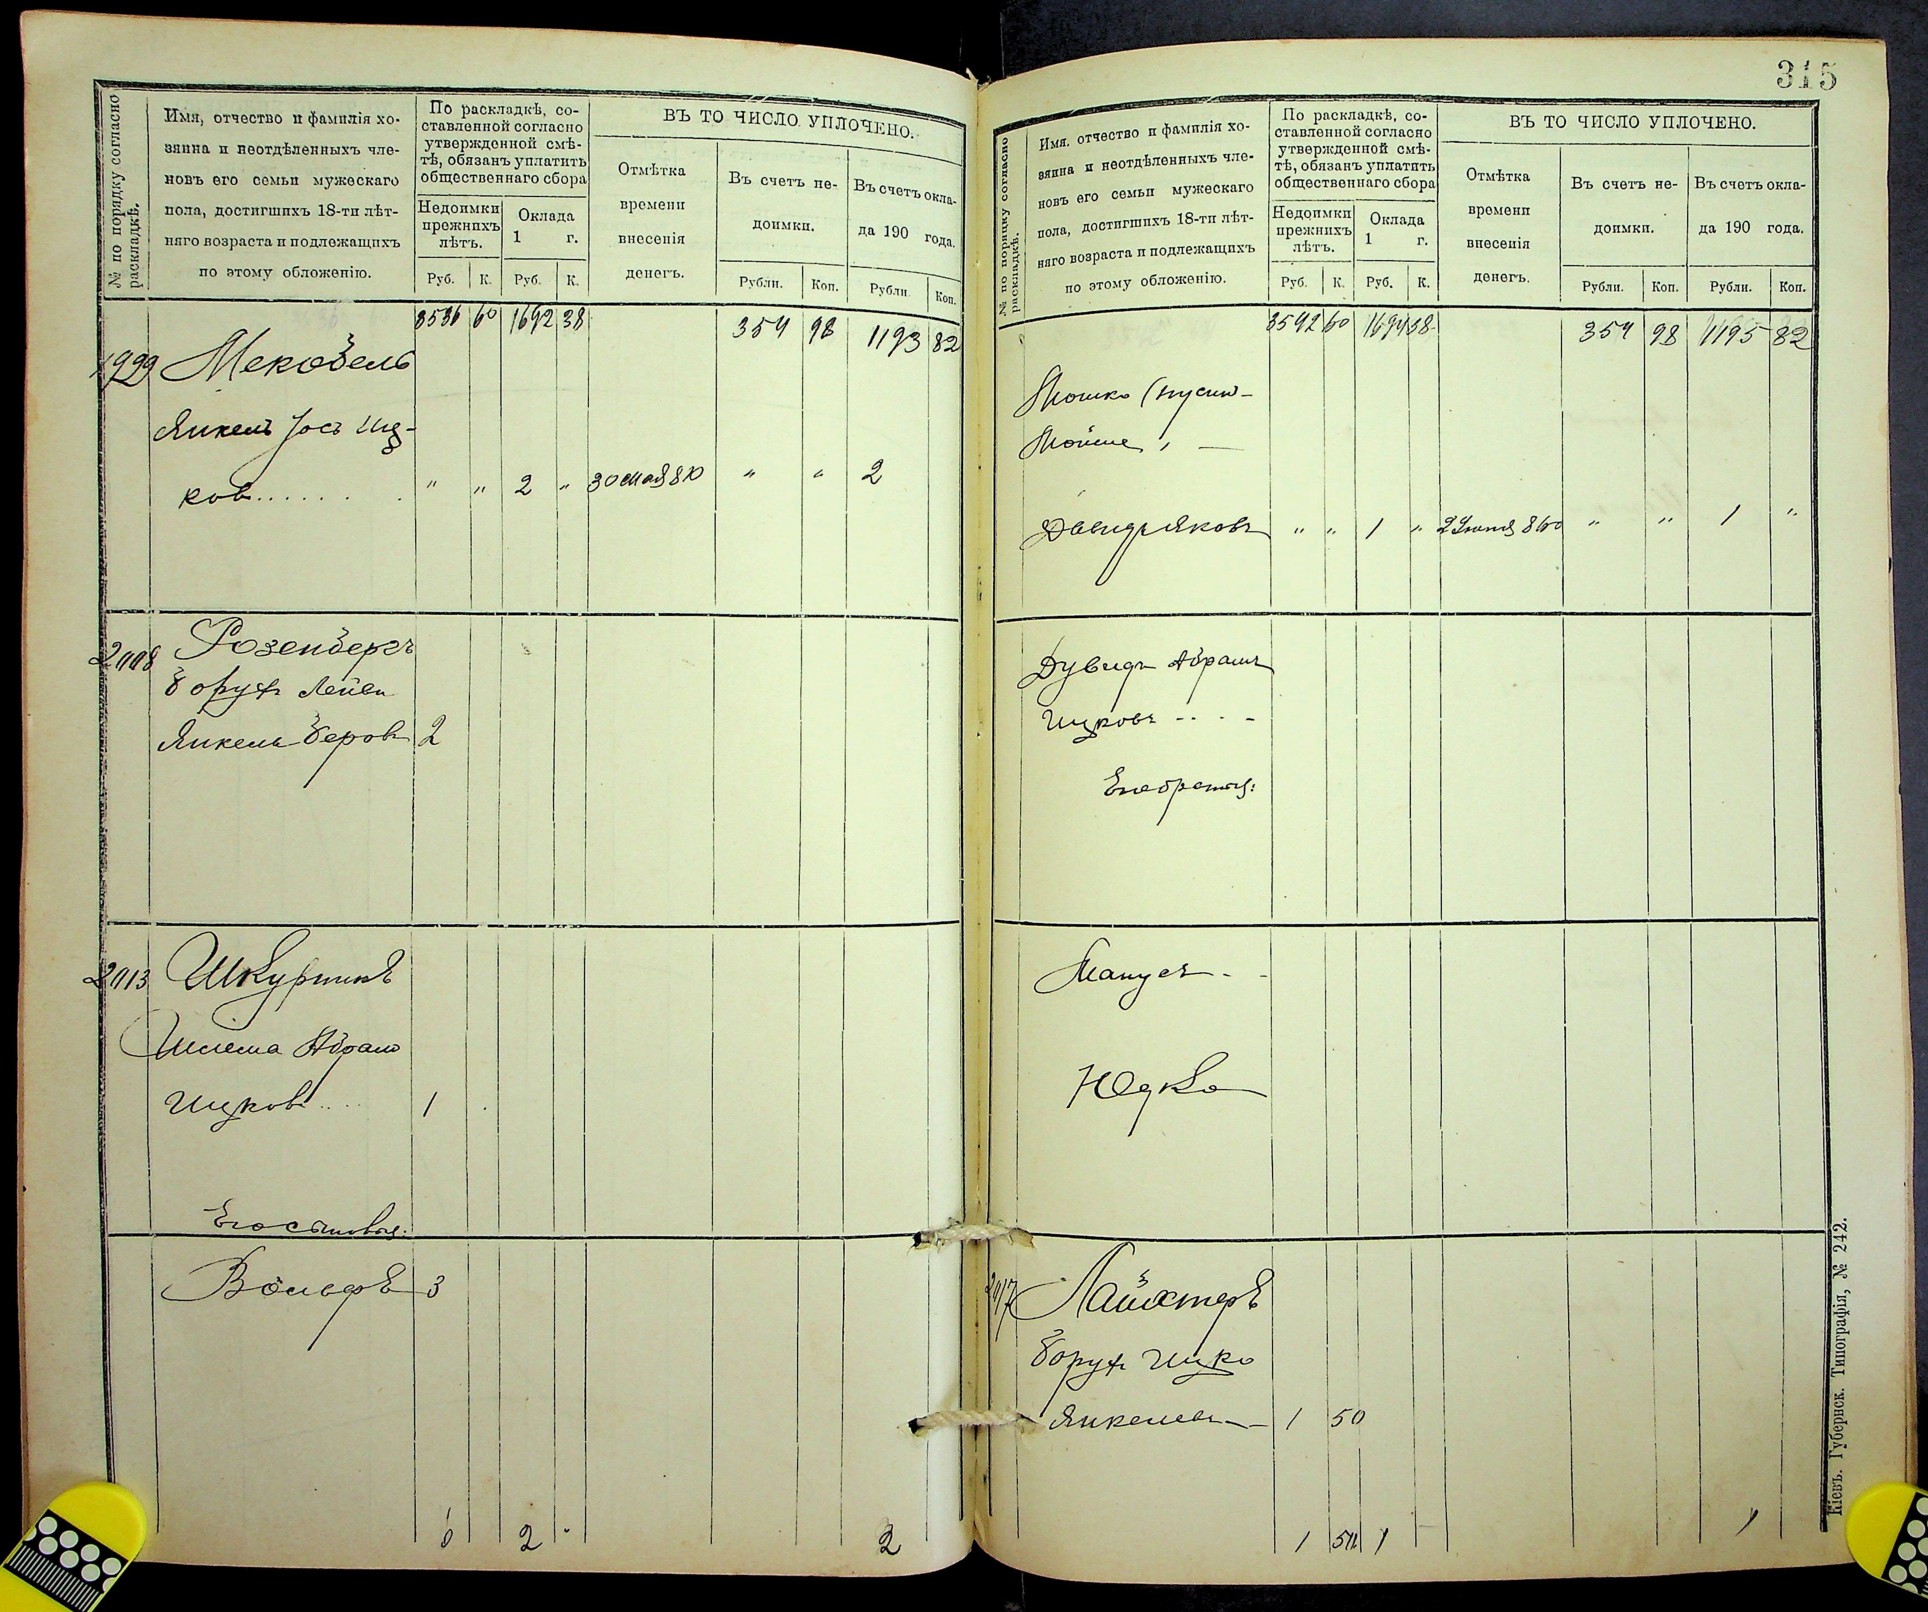 № по порядку согласно
раскладкѣ.
Имя, отчество и фамилія хо-
зяина и неотдѣленныхъ чле-
новъ его семьи мужескаго
пола, достигшихъ 18-ти лѣт-
няго возраста и подлежащихъ
по этому обложенію.
По раскладкѣ, со-
ставленной согласно
утвержденной смѣ-
тѣ, обязанъ уплатить
общественнаго сбора
Недоимки
прежнихъ
лѣтъ.
Оклада
1 г.
Руб. К. Руб. К.
ВЪ ТО ЧИСЛО УПЛОЧЕНО.
Отмѣтка
времени
внесенія
денегъ.
Въ счетъ не-
доимки.
Въ счетъ окла-
да 190 года.
Рубли. Коп. Рубли. Коп.
3536 60 1692 38 354 98 1193 82
1999
Янкель Іос Иц-
ков...... " " 2 " 30 мая " " 2
2008 Розенбергъ
Борух Лейви
Янкель Беров 2
2013 Шкурникъ
Шлема Абрам
Ицков.... 1
Его сыновья:
Вольфъ 3
6 2 2
315
№ по порядку согласно
раскладкѣ.
Имя, отчество и фамилія хо-
зяина и неотдѣленныхъ чле-
новъ его семьи мужескаго
пола, достигшихъ 18-ти лѣт-
няго возраста и подлежащихъ
по этому обложенію.
По раскладкѣ, со-
ставленной согласно
утвержденной смѣ-
тѣ, обязанъ уплатить
общественнаго сбора
Недоимки
прежнихъ
лѣтъ.
Оклада
1 г.
Руб. К. Руб. К.
ВЪ ТО ЧИСЛО УПЛОЧЕНО.
Отмѣтка
времени
внесенія
денегъ.
Въ счетъ не-
доимки.
Въ счетъ окла-
да 190 года.
Рубли. Коп. Рубли. Коп.
3542 60 1694 38 354 98 1195 82
Мошко
Мойше
Давидъ Яковъ " " 1 " " " 1 "
Дувидъ Абрамъ
Ицковъ - . . -
Его братья:
Манусъ - -
Юдко
2017
Борух Ицко
Янкелев 1 50
1 50 1 1
Кіевъ. Губернск. Типографія, № 242.